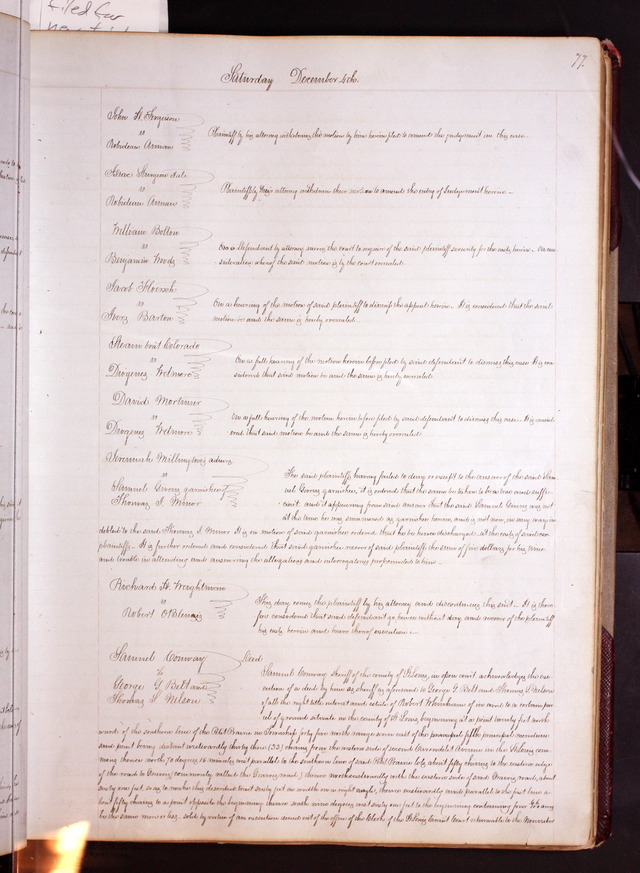 filed for
77.
Saturday December 4th.
John H. Ferguson
vs
Robidean Arman
Plaintiff by his attorney withdraws the motion by him herein filed to amend the judgement in this case.
vs
Robidean Arman
Plaintiffs by their attorney withdraw their motion to amend the entry of Judgement herein.
William Bolton
vs
Benjamin Woods
On Defendant by attorney moves the court to require of the said plaintiff security for the costs herein. On con-
sideration whereof the said motion is by the court overruled.
Jacob
vs
Barton
On a hearing of the motion of said plaintiff to dismiss the appeal herein. It is considered that the said
motion be and the same is hereby overruled.
Steam boat Colorado
vs
Diogenes Wetmore
On a full hearing of the motion herein before filed by said defendant to dismiss this case It is con-
sidered that said motion be and the same is hereby overruled.
David Mortimer
vs
Diogenes Wetmore
On a full hearing of the motion herein before filed by said defendant to dismiss this case. It is consid-
ered that said motion be and the same is hereby overruled.
Jeremiah Millington's admr
vs
Samuel Gwens garnishee of
Thomas I. Minor
The said plaintiffs having failed to deny or except to the answer of the said Sam-
uel garnishee, it is ordered that the same be taken to be true and suffi-
cient. and it appearing from said answer that the said Samuel was not
at the time he was summoned as garnishee herein, and is not now, in any way in-
debted to the said Thomas I. Minor It is on motion of said garnishee ordered that he be hence discharged at the costs of said
plaintiffs. It is further ordered and considered that said garnishee recover of said plaintiffs the sum of five dollars for his time
and trouble in attending and answering the allegations and interrogatories propounded to him.
Richard H. Weightman
vs
Robert O'Blenis
This day comes the plaintiff by his attorney and discontinues this suit. It is there-
fore considered that said defendant go hence without day and recover of the plaintiff
his costs herein and have thereof execution.
Samuel Conway
to
George G. Belt and
Thomas S. Nelson
Deed
Samuel Conway Sheriff of the county of St Louis, in open court acknowledges the exe-
cution of a deed by him as sheriff as aforesaid to George G. Belt and Thomas S. Nelson
of all the right title interest and estate of Robert in and to a certain par-
cel of ground situate in the county of St Louis, beginning at a point twenty feet north
ward of the southern line of the Petit Prairie in Township forty five north range seven east of the principal fifth principal meridian
said point being distant westwardly thirty three (33) chains from the western side of second Carondelet Avenue in the St Louis com-
mons thence north 70 degrees 15 minutes west parallel to the southern line of said Petit Prairie lots, about fifty chains to the eastern edge
of the road to Gravois (commonly called the Gravois road) thence northeastwardly with the eastern side of said Gravois road, about
sixty one feet, so as to make this described tract sixty feet in width on a right angle, thence eastwardly and parallel to the first line a-
bout fifty chains to a point opposite the beginning thence south nine degrees west sixty one feet to the beginning containing four 54/100 acres
be the same more or less. sold by virtue of an execution issued out of the office of the Clerk of the St Louis Circuit Court returnable to the November